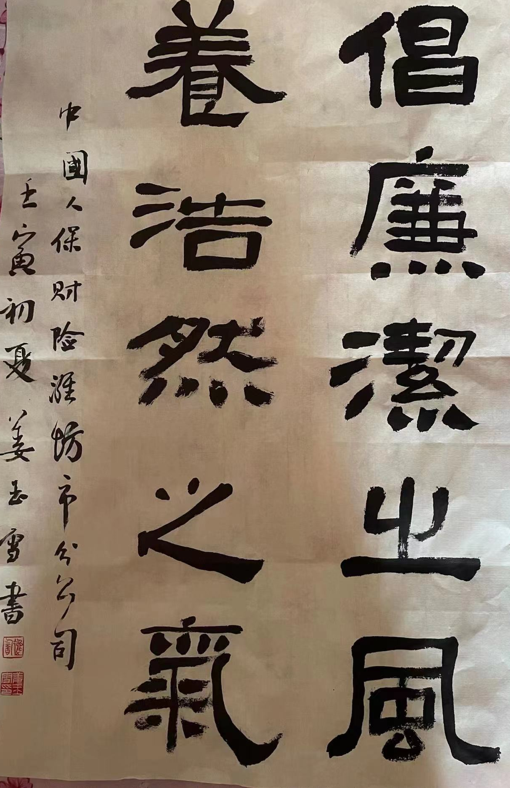 倡廉潔之風
養浩然之氣
中國人保财险潍坊市分公司
壬寅初夏姜玉雪書